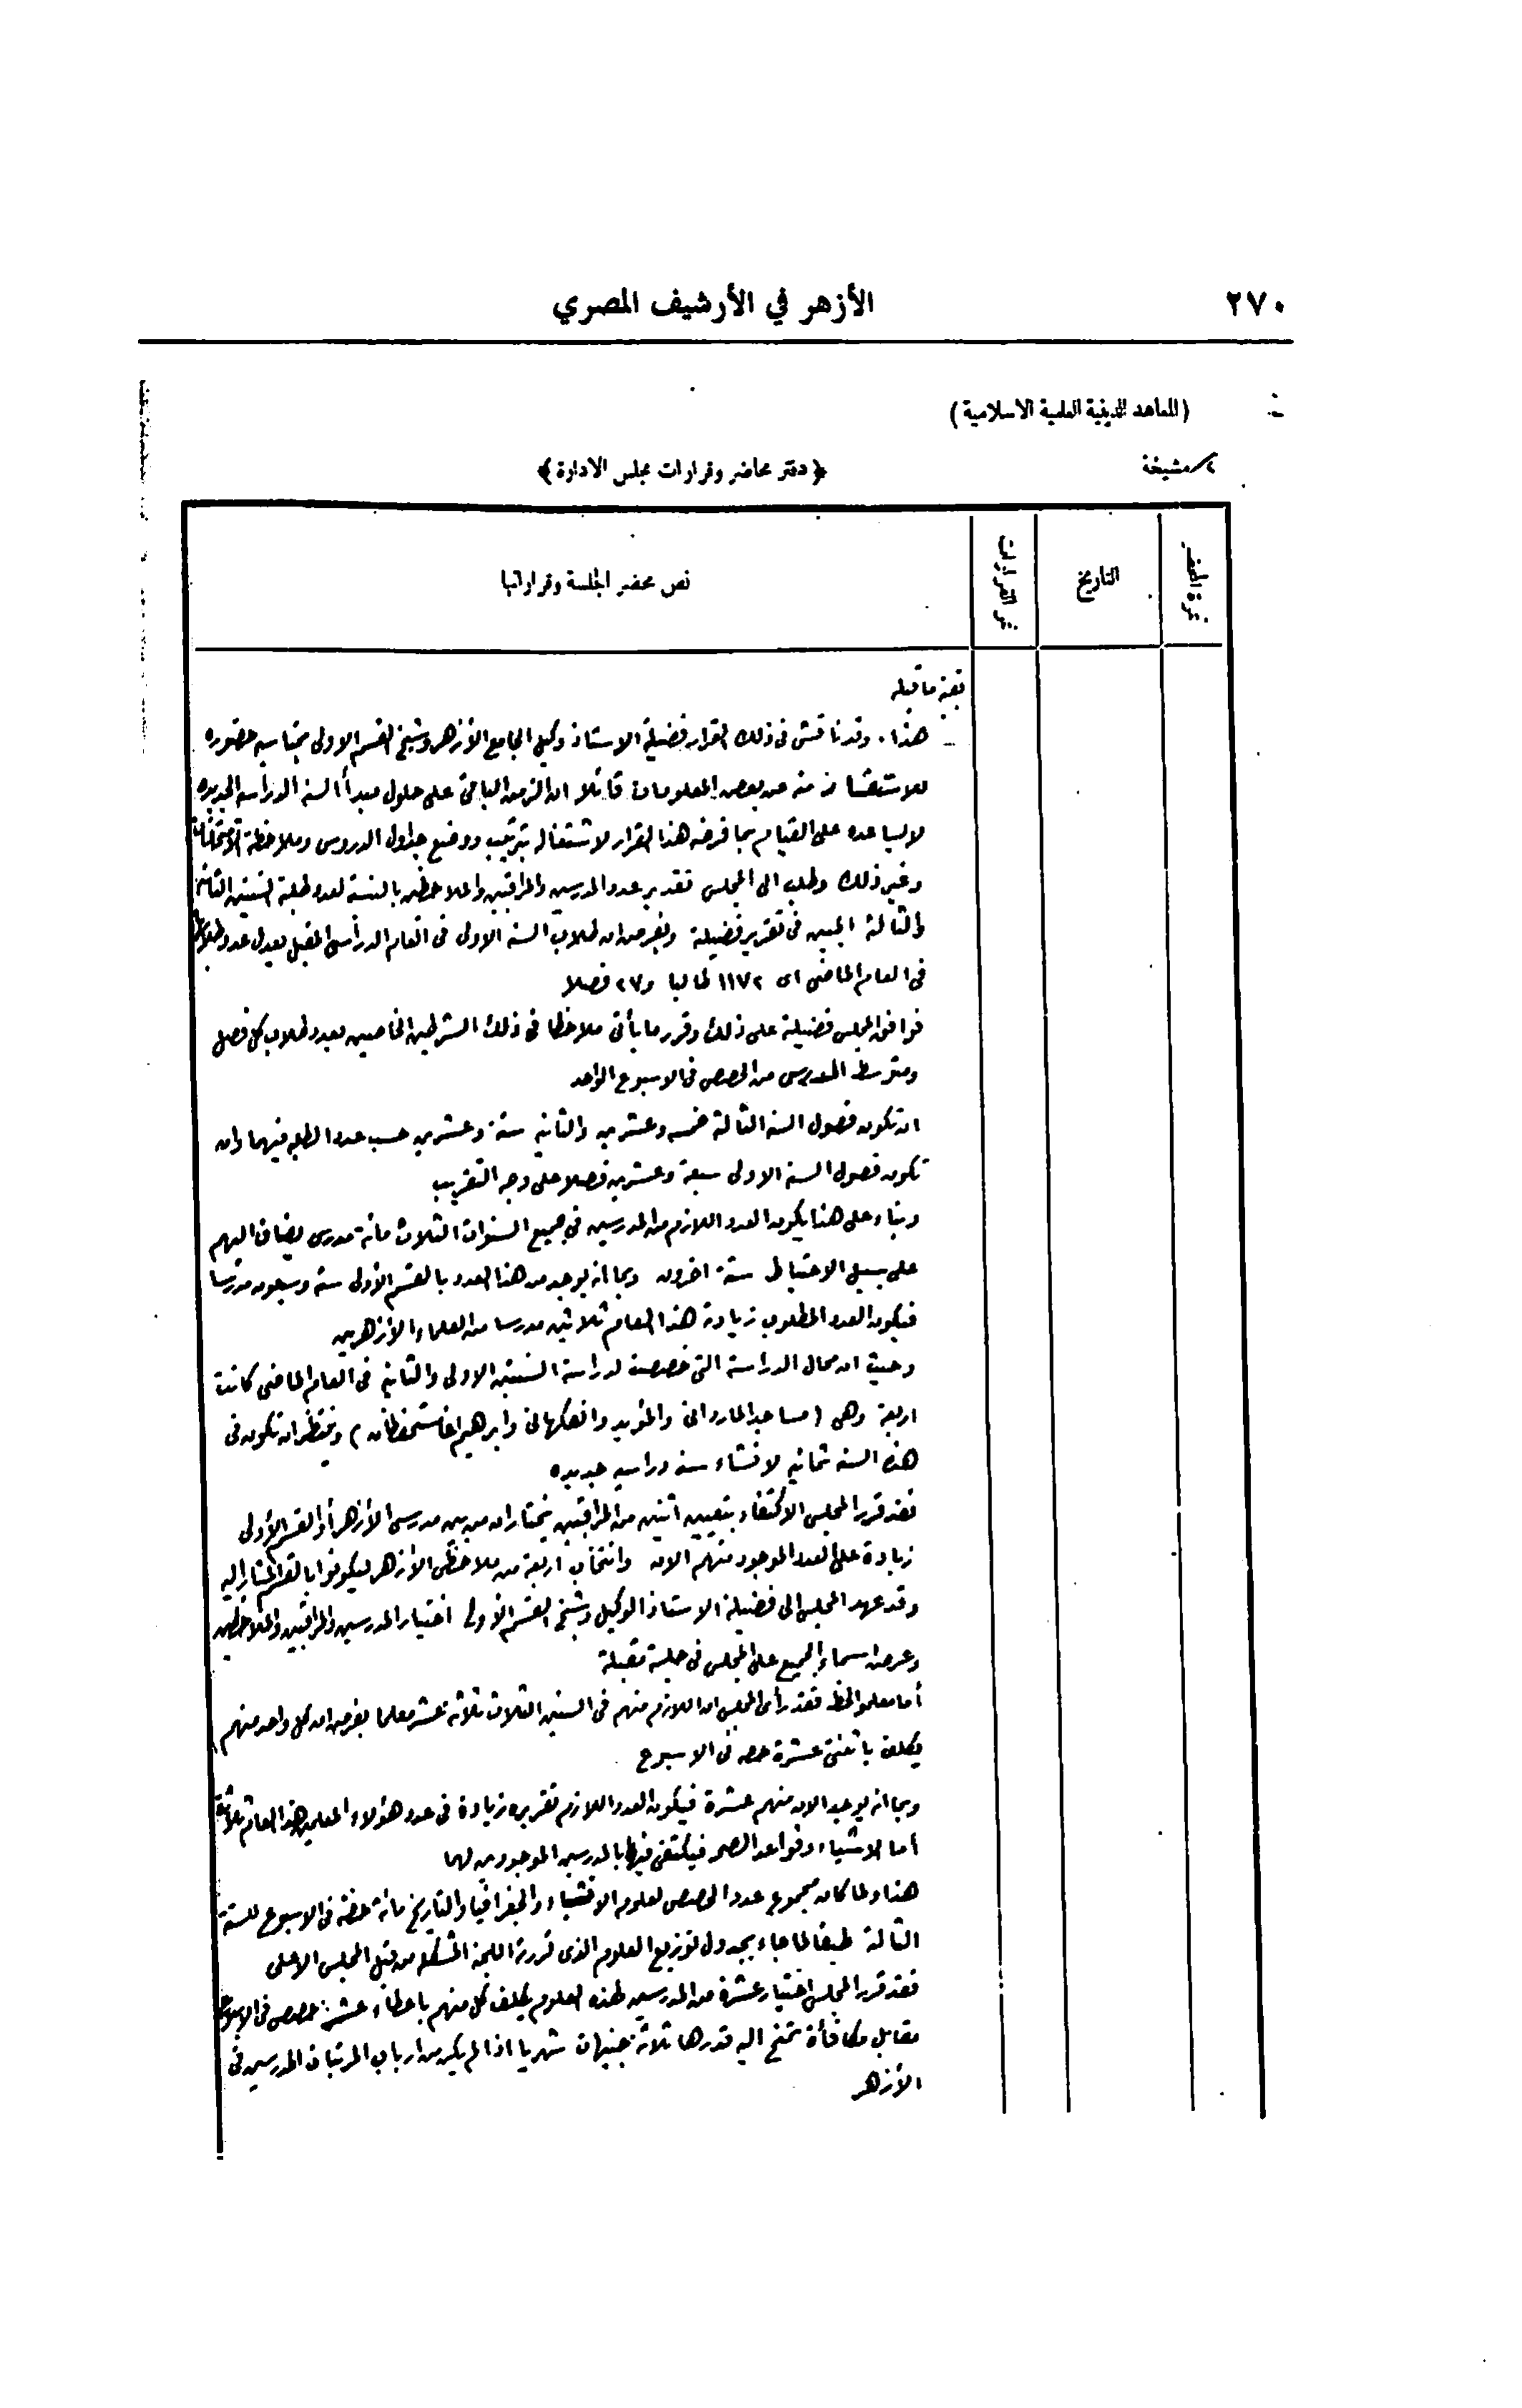 ٢٧٠
الأزهر في الأرشيف المصري
(المعاهد الدينية العلمية الاسلامية)
مشيخة
﴿دفتر محاضر وقرارات مجلس الادارة﴾
نمرة المحضر
التاريخ
نمر القرارات
نص محضر الجلسة وقراراتها
بقية ما قبله
هذا. وقد ناقش فى ذلك القرار فضيلة الاستاذ وكيل الجامع الأزهر وشيخ القسم الاولى بمناسبة حضوره
للاستفسار منه عن بعض المعلومات قائلا ان الزمن الباقى على حلول مبدأ السنة الدراسية الجديدة
لا يساعده على القيام بما فرضه هذا القرار لاشتغاله بترتيب ووضع جداول الدروس وملاحظة الامتحانات
وغير ذلك وطلب الى المجلس تقدير عدد المدرسين والمراقبين والملاحظين بالنسبة لعدد طلبة السنتين الثانية
والثالثة المبين فى تقرير فضيلته وبفرض ان طلاب السنة الاولى فى العام الدراسى المقبل يعدل عدد طلابها
فى العام الماضى اى ١١٧٢ طالبا و٢٧ فصلا
فوافق المجلس فضيلته على ذلك وقرر ما يأتى ملاحظا فى ذلك الشرطين الخاصين بعدد طلاب كل فصل
ومتوسط المدرس من الحصص فى الاسبوع الواحد
ان تكون فصول السنة الثالثة خمسه وعشرين والثانية ستة وعشرين حسب عدد الطلبه فيهما وان
تكون فصول السنة الاولى سبعة وعشرين فصلا على وجه التقريب
وبناء على هذا يكون العدد اللازم من المدرسين فى جميع السنوات الثلاث مائة مدرس يضاف اليهم
على سبيل الاحتياط ستة اخرون وبما انه يوجد من هذا العدد بالقسم الأولى ستة وسبعون مدرسا
فيكون العدد المطلوب زيادة هذا العام ثلاثين مدرسا من العلماء الأزهريين
وحيث ان محال الدراسة التى خصصت لدراسة السنتين الاولى والثانية فى العام الماضى كانت
اربعة وهى (مساجد الماردانى والمؤيد والفكهانى وابرهيم اغا مستحفظان) وينتظر ان تكون فى
هذه السنه ثمانيه لانشاء سنه دراسيه جديده
فقد قرر المجلس الاكتفاء بتعيين اثنين من المراقبين يختاران من بين مدرسى الأزهر أو القسم الأولى
زيادة على العدد الموجود منهم الان وانتخاب اربعة من ملاحظى الأزهر ليكونوا بالقسم المشار اليه
وقد عهد المجلس الى فضيلة الاستاذ الوكيل وشيخ القسم الأولى اختيار المدرسين والمراقبين والملاحظين
وعرض اسماء الجميع على المجلس فى جلسة مقبلة
أما معلمو الخط فقد رأى المجلس ان اللازم منهم فى السنين الثلاث ثلاثة عشر معلما بفرض ان كل واحد منهم
يكلف باثنتى عشرة حصه فى الاسبوع
وبما انه يوجد الان منهم عشرة فيكون العدد اللازم تقريره زيادة فى عدد هؤلاء المعلمين هذا العام ثلاثة
أما الاشياء وقواعد الصحه فيكتفى فيها بالمدرسين الموجودين لهما
هذا ولما كان مجموع عدد الحصص لعلوم الانشاء والجغرافيا والتاريخ مائة حصة فى الاسبوع للسنة
الثالثة طبقا لما جاء بجدول توزيع العلوم الذى قررته اللجنة المشكلة من قبل المجلس الاعلى
فقد قرر المجلس اختيار عشرة من المدرسين لهذه العلوم يكلف كل منهم باعطاء عشر حصص فى الاسبوع
مقابل مكافأة تمنح اليه قدرها ثلاثة جنيهات شهريا اذا لم يكن من ارباب المرتبات المدرسين فى
الأزهر